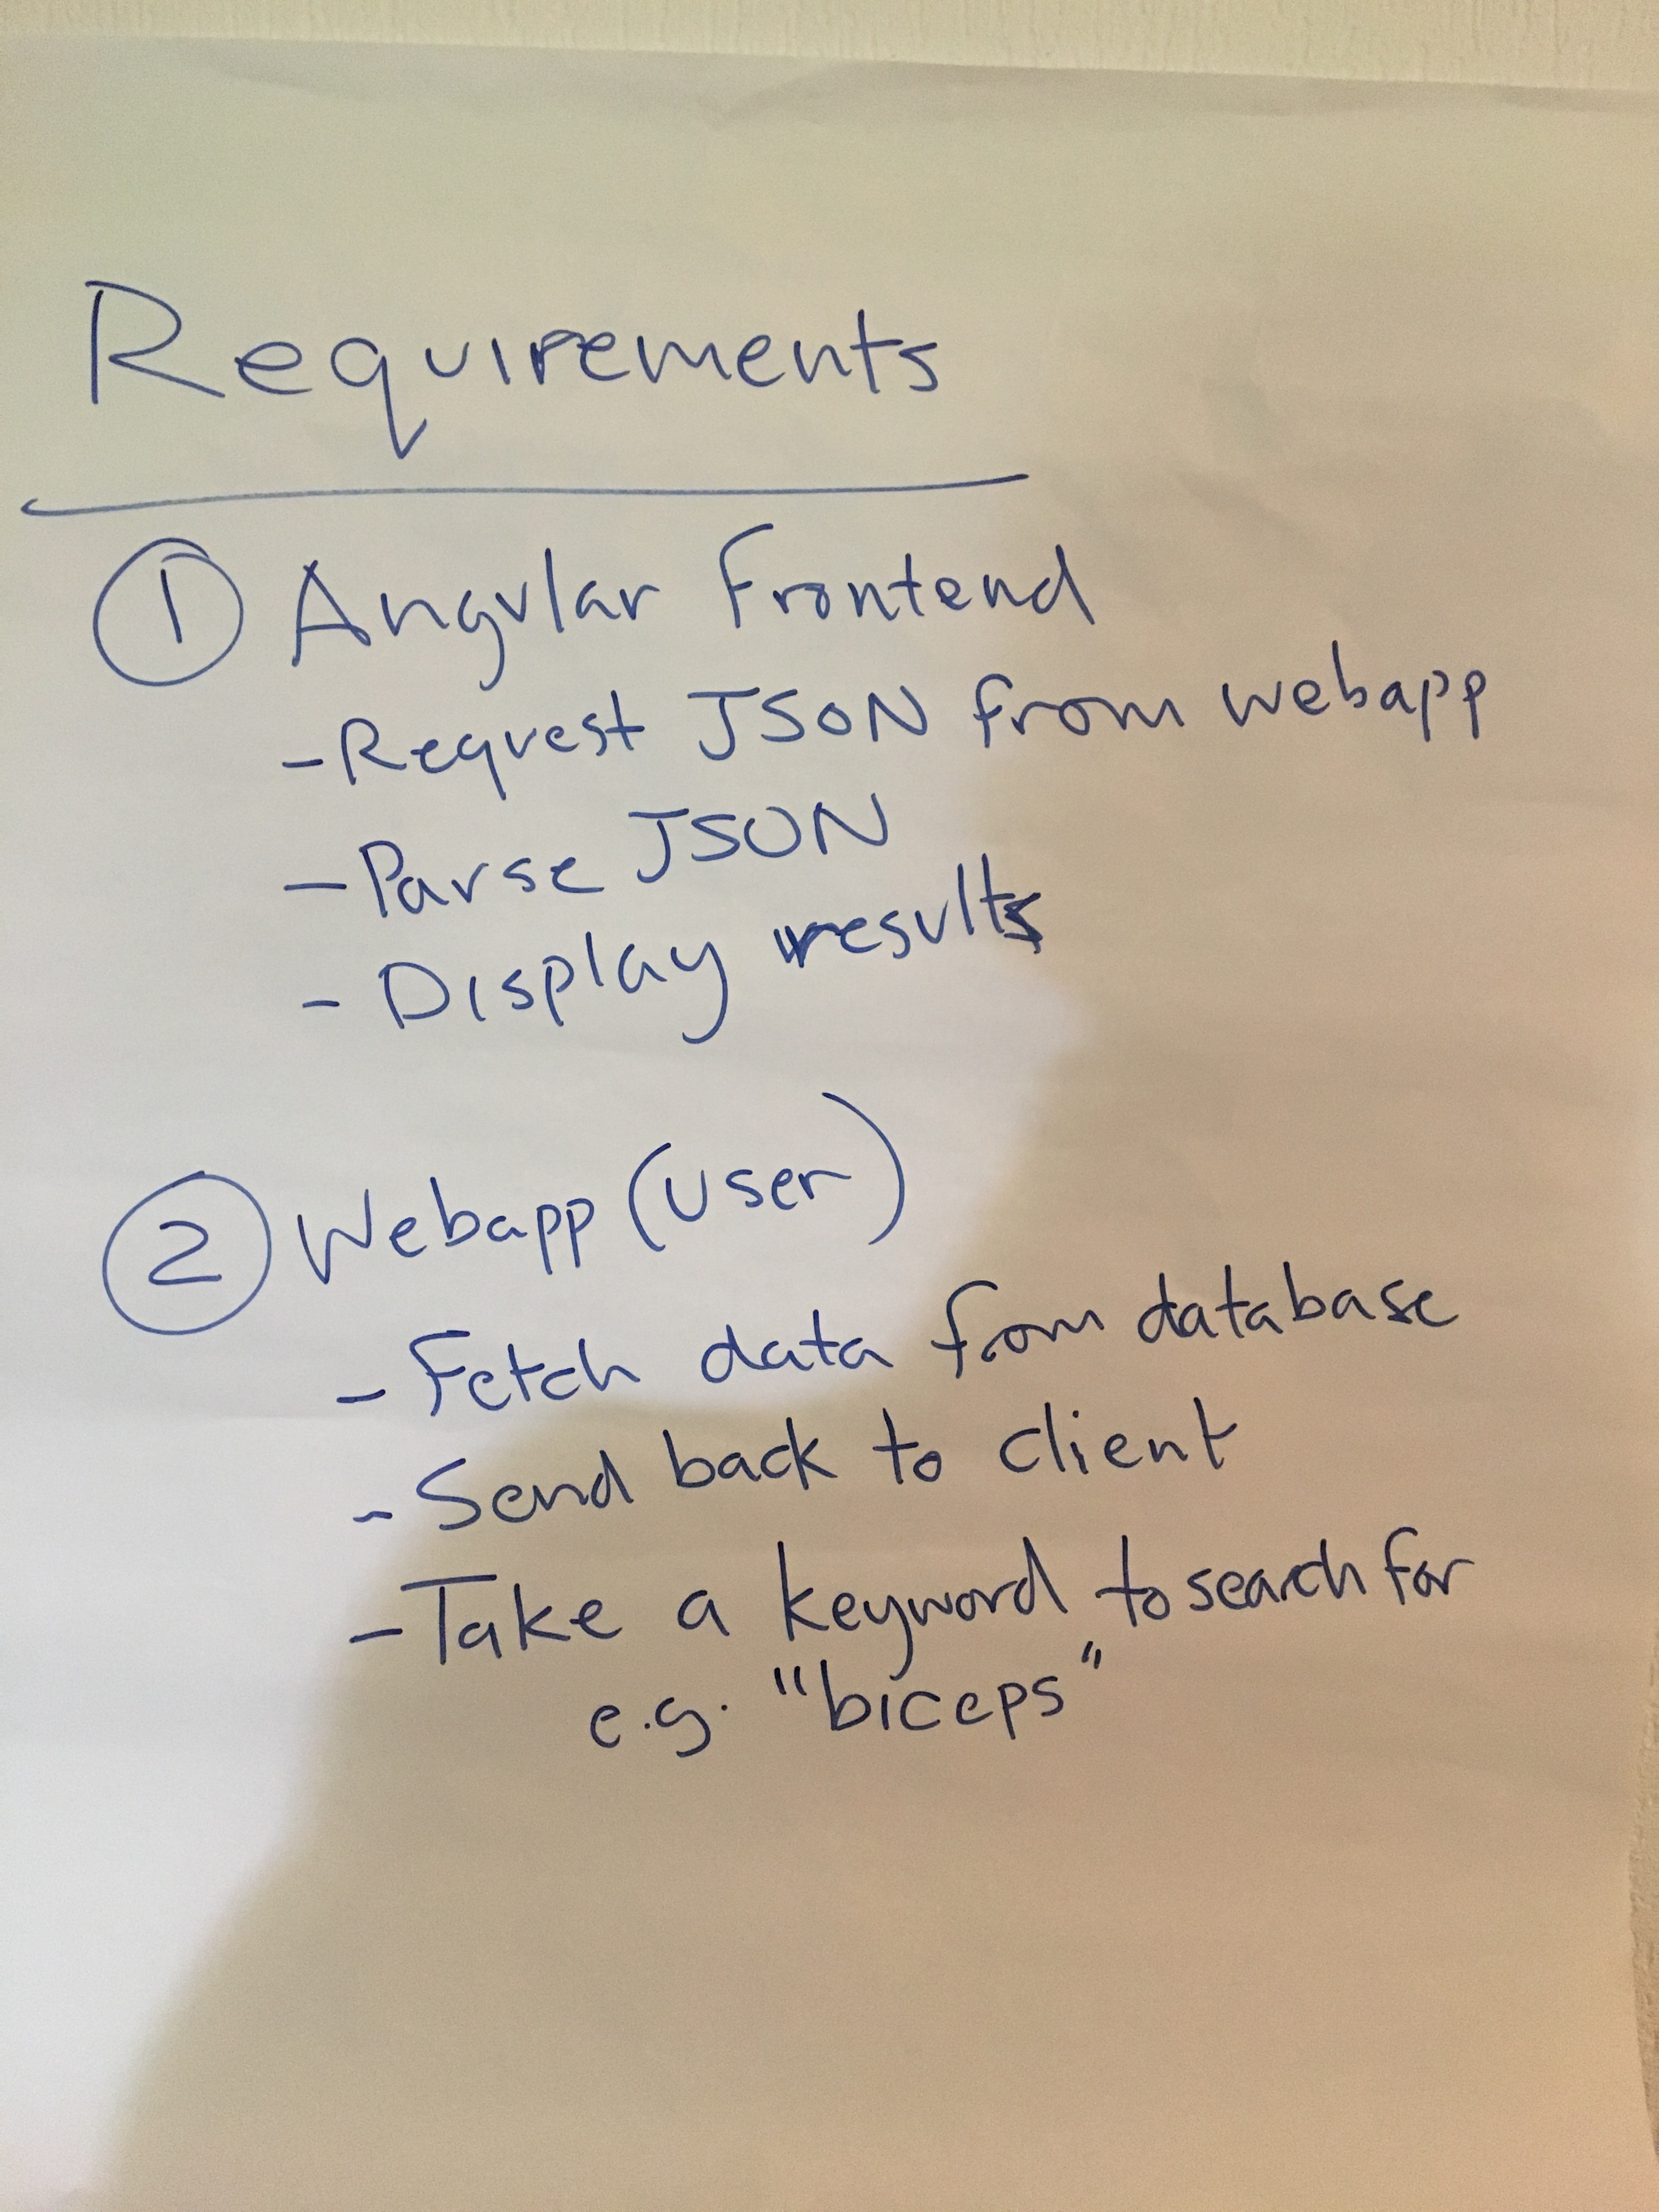 Requirements
① Angular Frontend
- Request JSON from webapp
- Parse JSON
- Display results
② Webapp (user)
- Fetch data from database
- Send back to client
- Take a keyword to search for
e.g. "biceps"